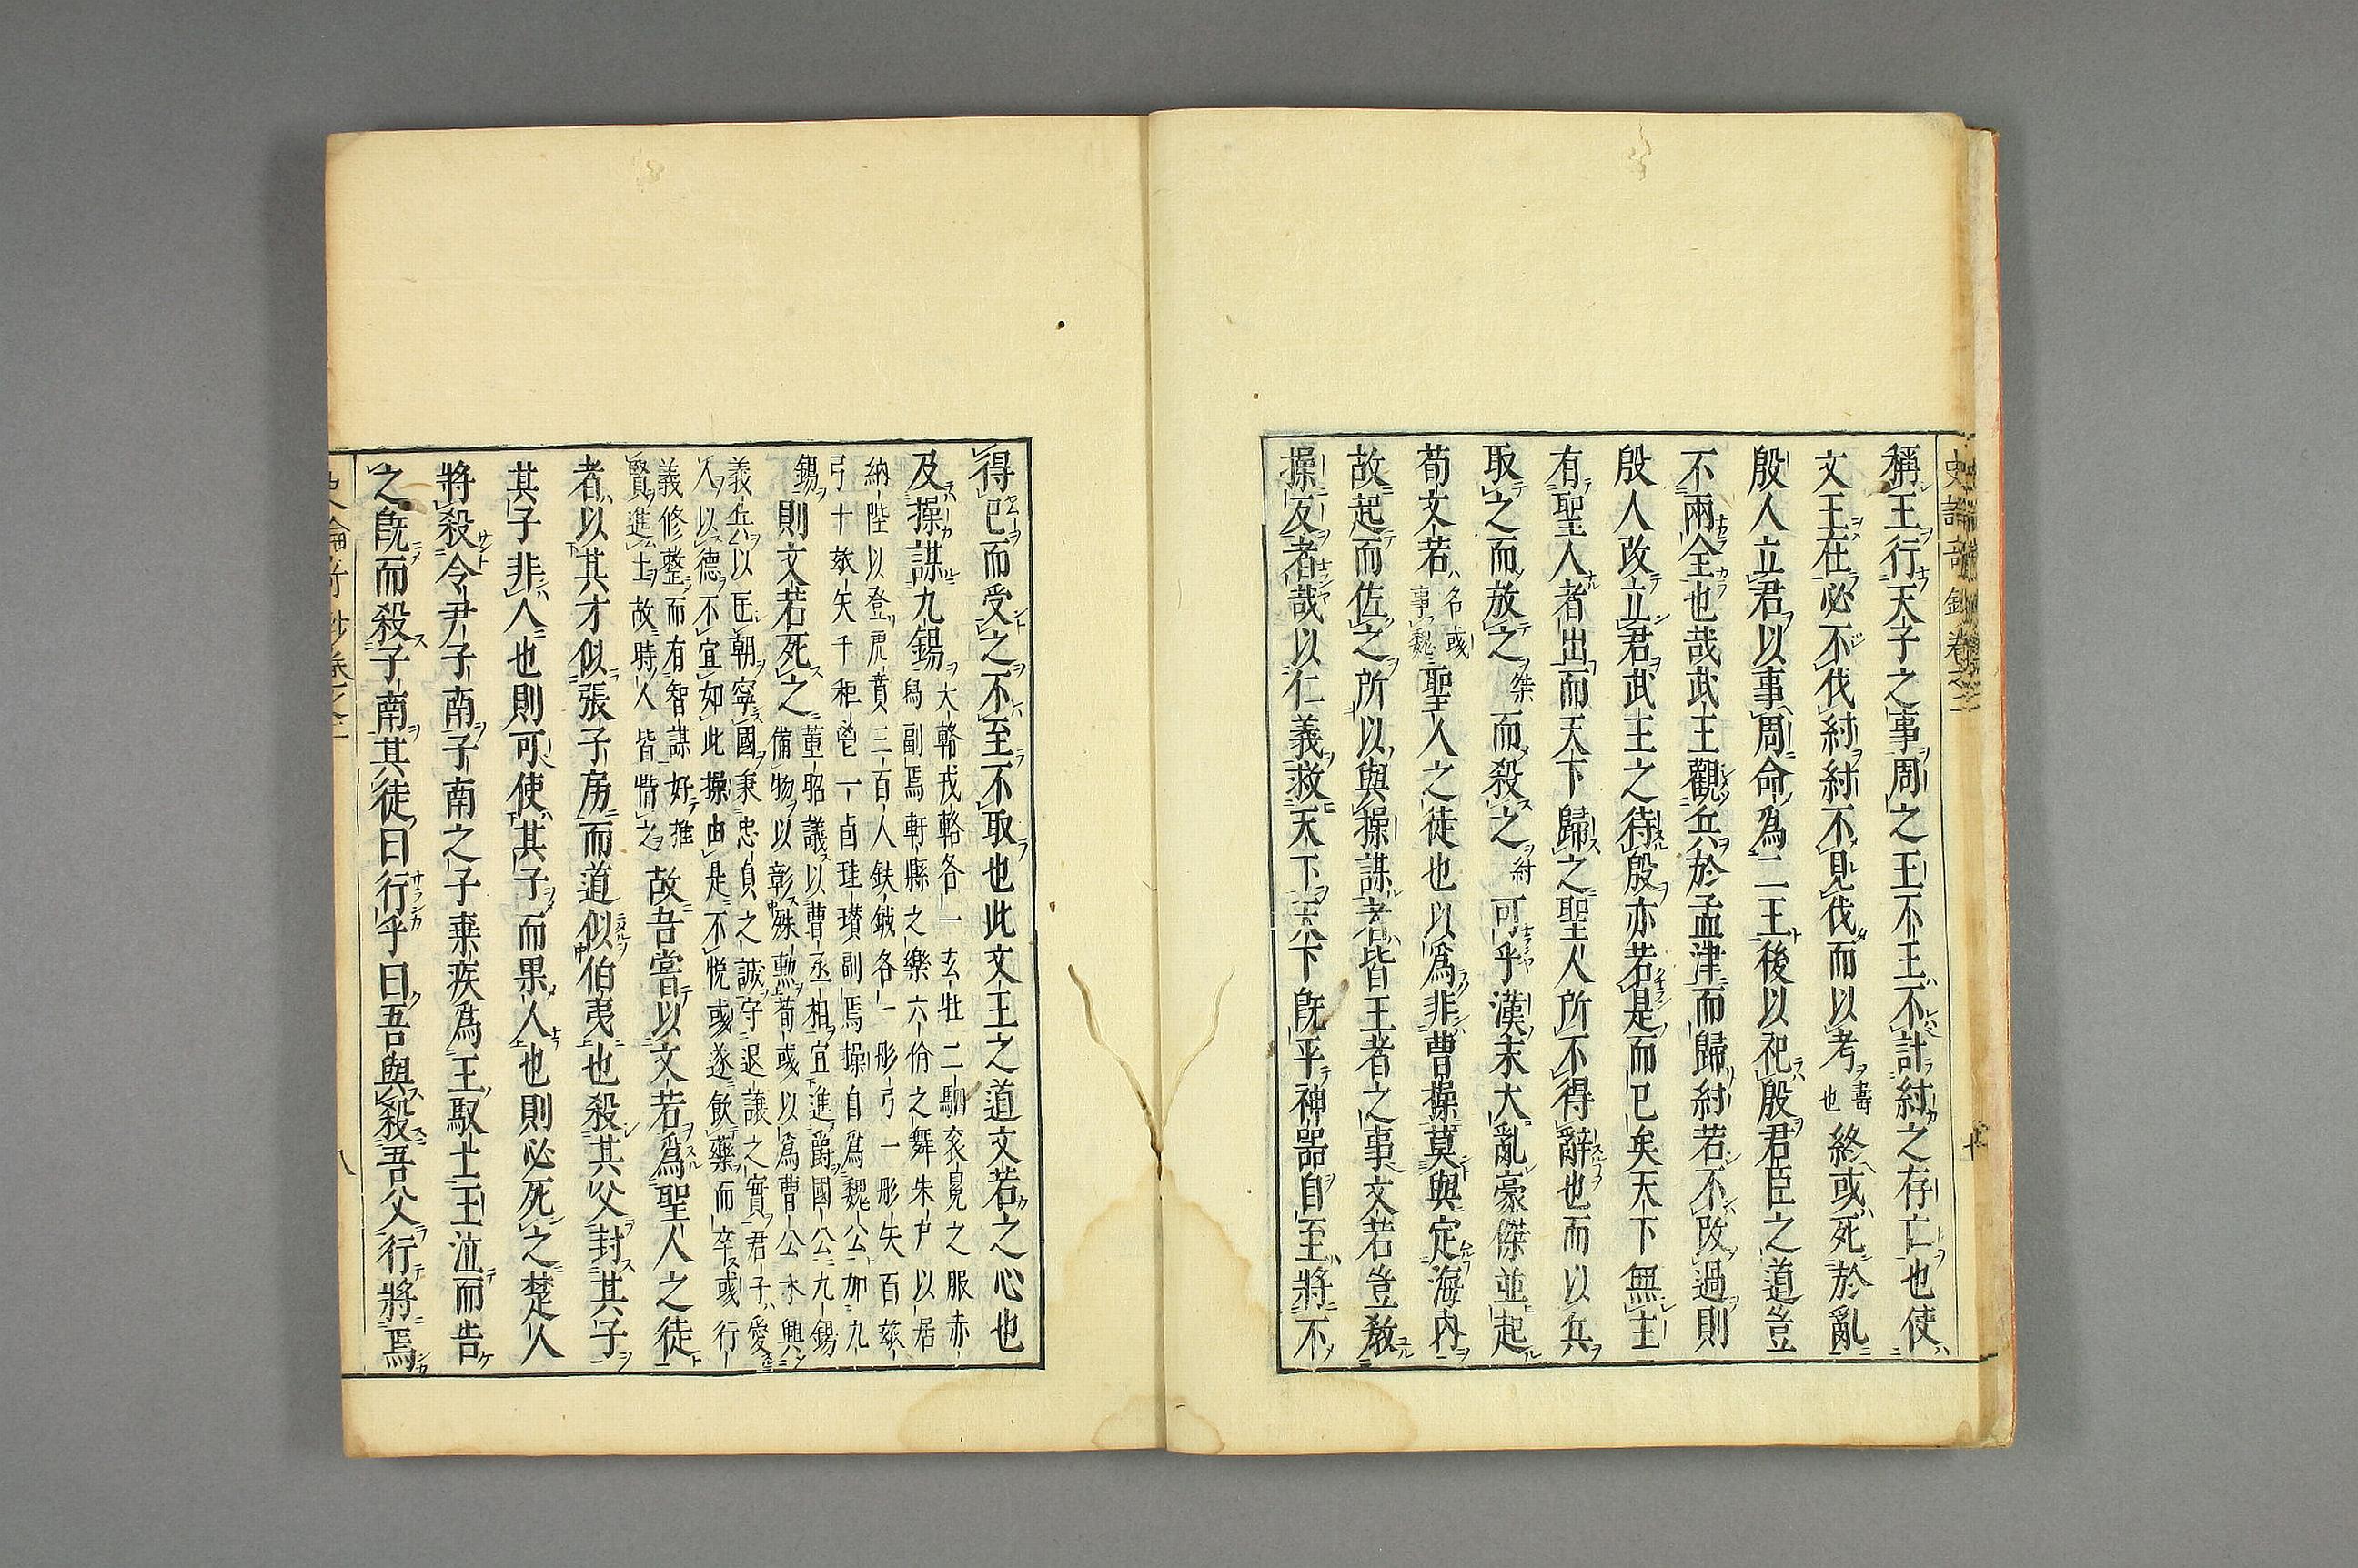 稱王行天子之事周之王不王不計紂之存亡也使
文王在必不伐紂紂不見伐而以考壽也終或死於亂
殷人立君以事周命為二王後以祀殷君臣之道豈
不兩全也哉武王觀兵於孟津而歸紂若不改過則
殷人改立君武王之待殷亦若是而已矣天下無王
有聖人者出而天下歸之聖人所不得辭也而以兵
取之而放之桀而殺之紂可乎漢末大亂豪傑並起
荀文若名彧事魏聖人之徒也以為非曹操莫與定海內
故起而佐之所以與操謀者皆王者之事文若豈教
操反者哉以仁義救天下天下既平神器自至將不
得已而受之不至不取也此文王之道文若之心也
及操謀九錫
大輅戎輅各一玄牡二駟袞冕之服赤
舄副焉軒縣之樂六佾之舞朱戶以居
納陛以登虎賁三百人鈇鉞各一彤弓一彤矢百玈
弓十玈矢千秬鬯一卣珪瓚副焉操自為魏公加九
錫
則文若死之
董昭議以曹丞相宜進爵國公九錫
備物以彰殊勲荀彧以為曹公本興
義兵以匡朝寧國秉忠貞之誠守退讓之實君子愛
人以德不宜如此操由是不悅彧遂飲藥而卒彧行
義修整而有智謀好推
賢進士故時人皆惜之
故吾嘗以文若為聖人之徒
者以其才似張子房而道似伯夷也殺其父封其子
其子非人也則可使其子而果人也則必死之楚人
將殺令尹子南子南之子棄疾為王馭士王泣而告
之既而殺子南其徒曰行乎曰吾與殺吾父行將焉